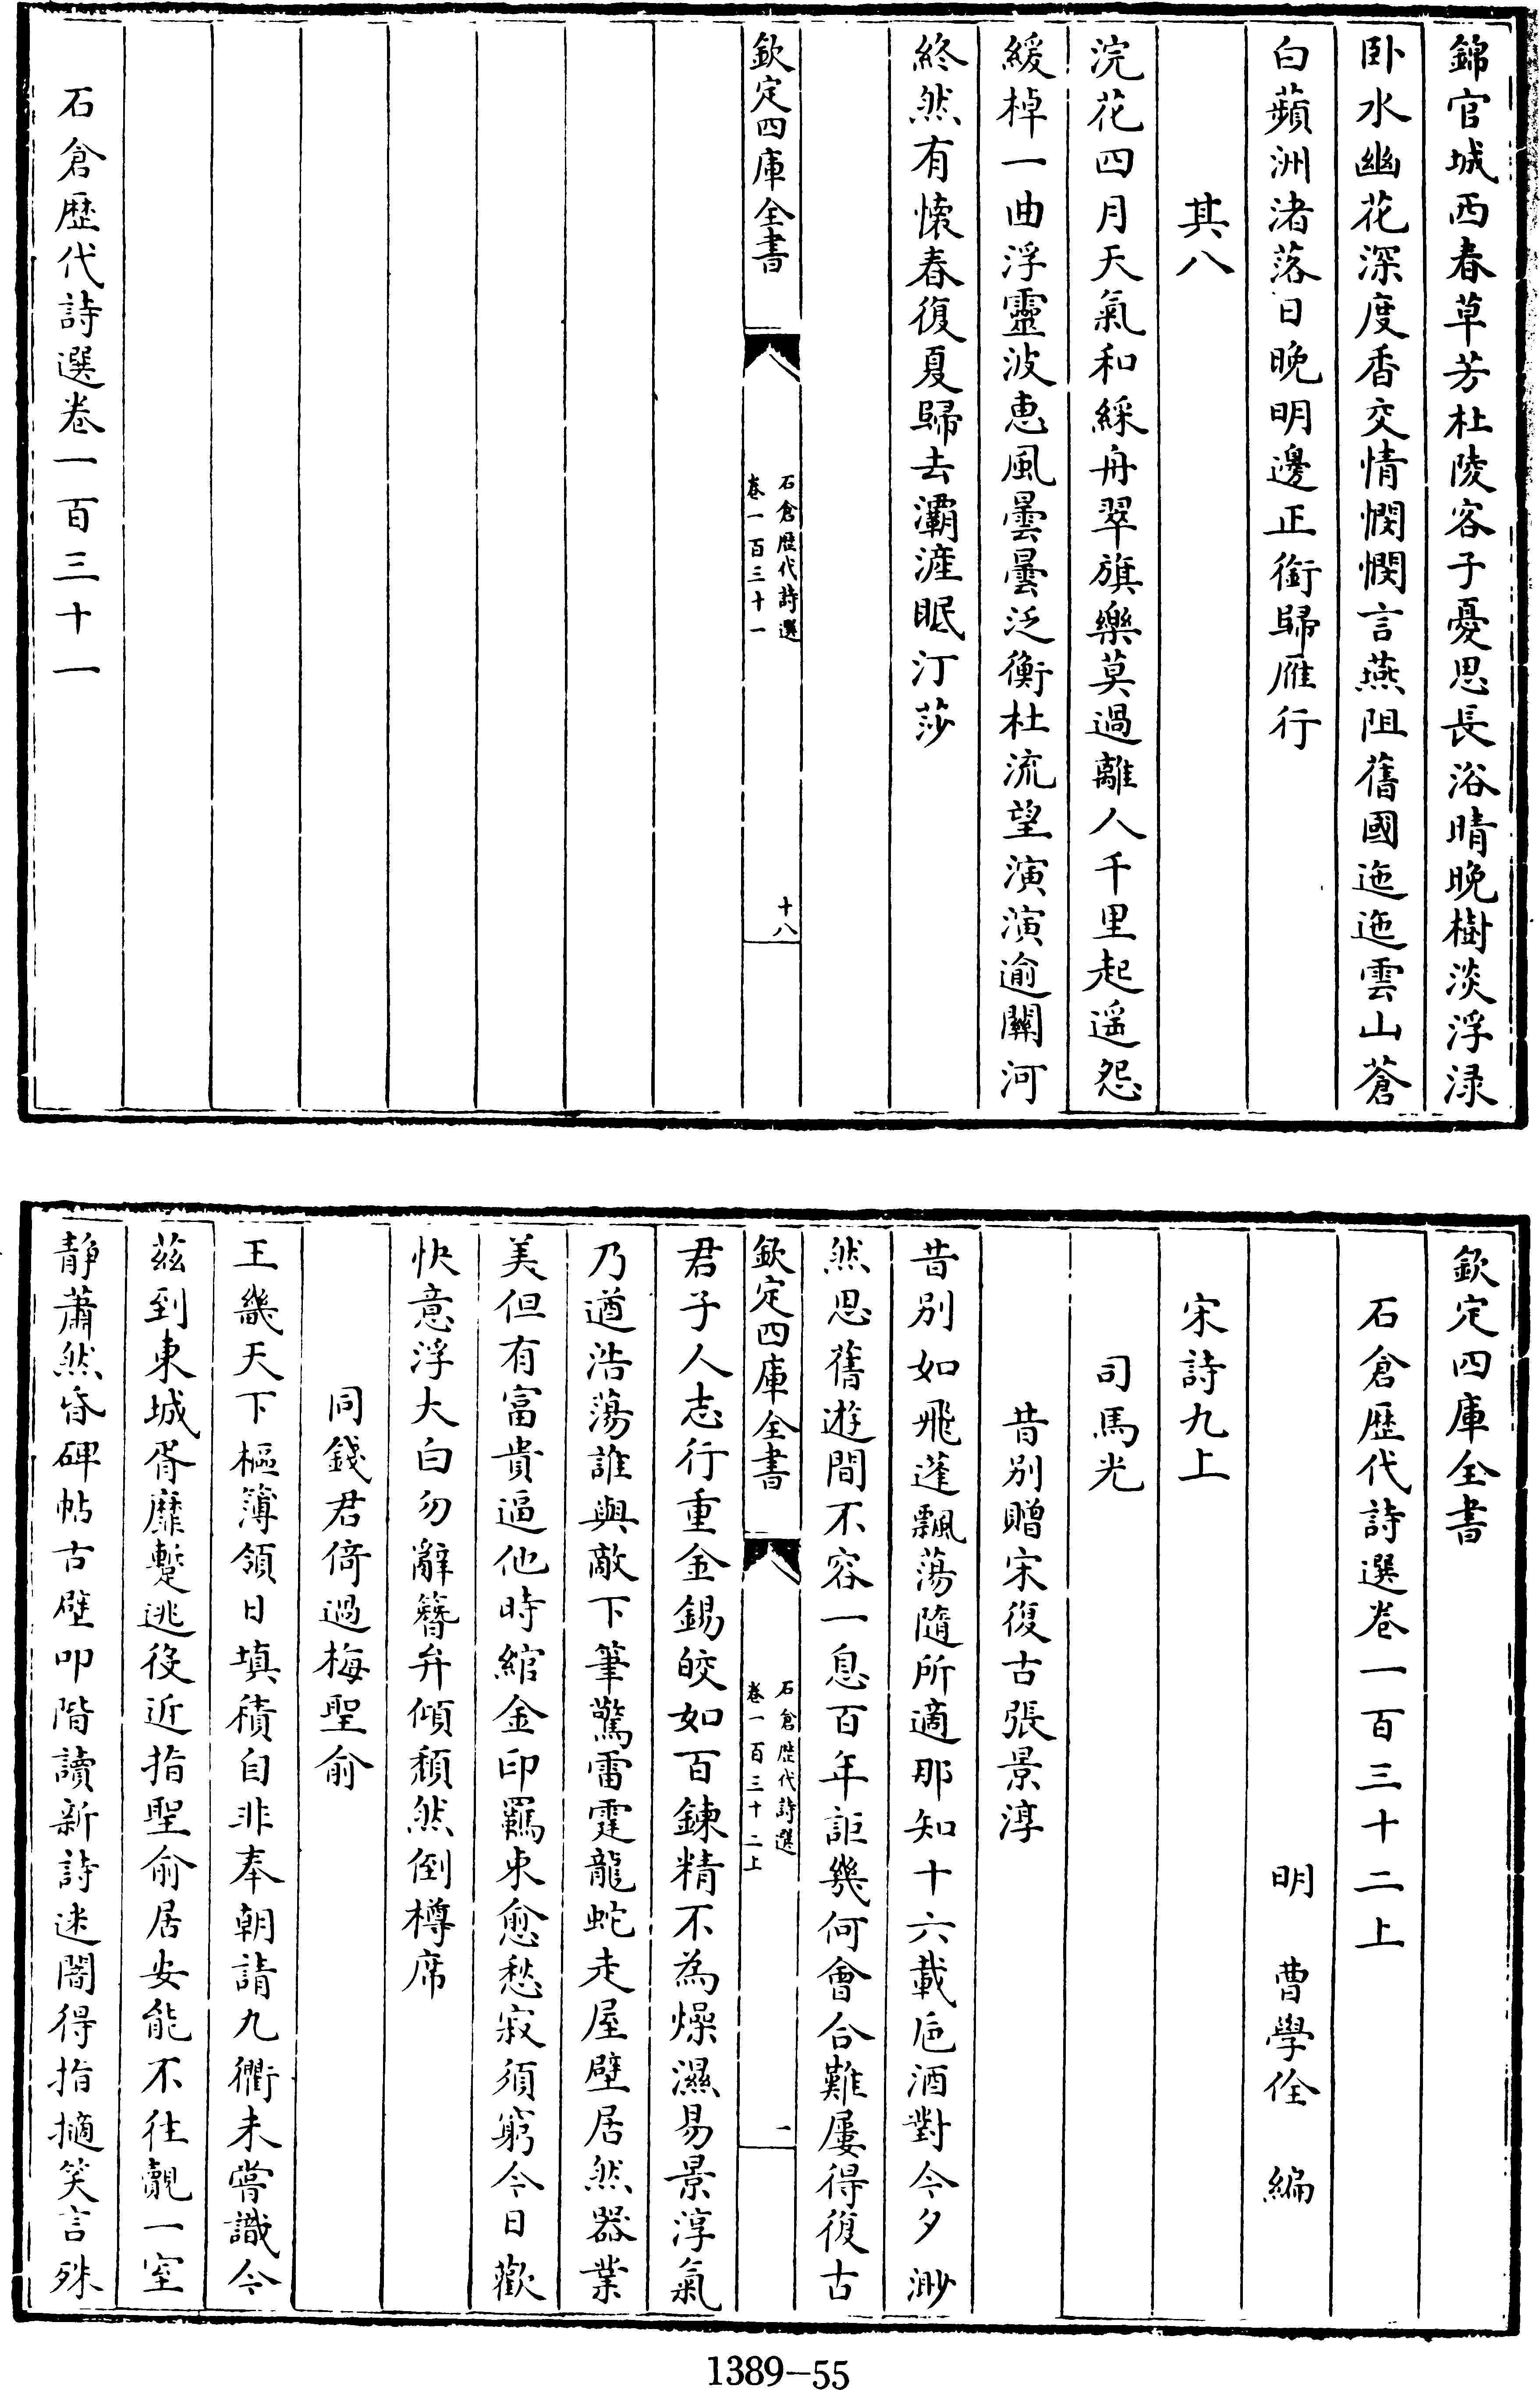 錦官城西春草芳杜陵客子憂思長浴晴晚樹淡浮渌
卧水幽花深度香交情憫憫言燕阻舊國迤迤雲山蒼
白蘋洲渚落日晚明邊正銜歸雁行
其八
浣花四月天氣和綵舟翠旗樂莫過離人千里起遥怨
緩棹一曲浮靈波恵風曇曇泛衡杜流望演演逾關河
終然有懷春復夏歸去灞滻眠汀莎
欽定四庫全書
石倉歴代詩選
卷一百三十一
十八
石倉歴代詩選卷一百三十一
欽定四庫全書
石倉歴代詩選卷一百三十二上
明 曹學佺 編
宋詩九上
司馬光
昔别贈宋復古張景淳
昔别如飛蓬飄蕩隨所適那知十六載巵酒對今夕渺
然思舊遊間不容一息百年詎幾何會合難屢得復古
欽定四庫全書
石倉歴代詩選
卷一百三十二上
一
君子人志行重金錫皎如百鍊精不為燥濕易景淳氣
乃遒浩蕩誰與敵下筆驚雷霆龍蛇走屋壁居然器業
美但有富貴逼他時綰金印羈束愈愁寂須窮今日歡
快意浮大白勿辭簪弁傾頽然倒樽席
同錢君倚過梅聖俞
王畿天下樞簿領日填積自非奉朝請九衢未嘗識今
兹到東城胥靡蹔逃役近指聖俞居安能不往覿一室
静蕭然昏碑帖古壁叩階讀新詩迷闇得指擿笑言殊
1389-55